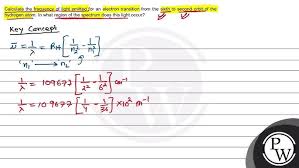 Calculate the frequency of light emitted for an electron transition from the sixth to second orbit of the
hydrogen atom. In what region of the spectrum does this light occur?
Key Concept
ν̅ = 1/λ = RH [1/n₁² - 1/n₂²]
'n₁' → n₂'
1/λ = 109673 [1/2² - 1/6²] cm⁻¹
1/λ = 109677 [1/4 - 1/36] × 10² m⁻¹
P
W